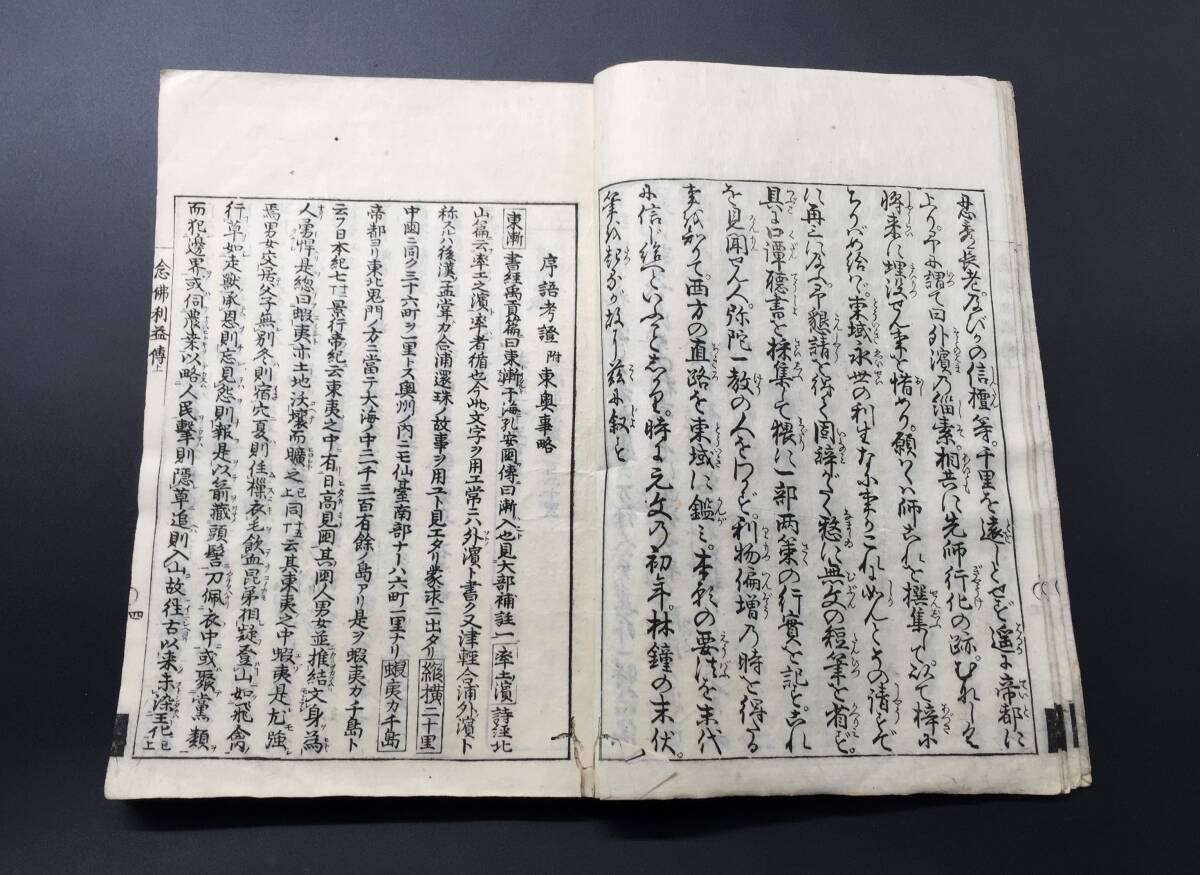 長老及びかの信檀等。千里を遠しとせず遥に帝都に
上り。予に謂て曰外濱乃緇素相共に先師行化の跡。むなしく
將來に埋没せん事を惜めり。願くハ師これを撰集して。以て梓に
ちりばめ給へ。東域永世の利生なにかこれにしかんとその請すで
に再三に及ぶ。予懇請を得て固辞がたく愁に無文の短筆を省ず。
具に口譚聽書を採集て猥に一部両策の行實を記とこれ
を見聞せん人。弥陀一教の人をハげし。利物偏増乃時を得たる
事を知りて。西方の直路を東域に鑑ミ。本願の要法を末代
に信じ給へといふことしかり。時に元文乃初年。林鐘の末伏。
筆を起すが故に茲に叙と
序語考證 附 東奧事略
東漸 書經禹貢篇曰東漸于海孔安國傳曰漸入也見大部補註一 率土濱 詩注北
山篇云率土之濱率者循也今此文字ヲ用エ常ニハ外濱ト書ク又津輕合浦外濱ト
称スルハ後漢ノ孟甞カ合浦還珠ノ故事ヲ用ユト見エタリ蒙求ニ出タリ 縱横三十里
中國ニ同ク三十六町ヲ一里トス奧州ノ内ニモ仙臺南部ナトハ六町一里ナリ 蝦夷カ千島
帝都ヨリ東北鬼門ノ方ニ當テ大海ノ中ニ千三百有餘ノ島アリ是ヲ蝦夷カ千島ト
云フ日本紀七景行帝紀云東夷之中有日高見國其國人男女並推結文身為
人勇悍是総曰蝦夷亦土地沃壤而曠之上同云其東夷之中蝦夷是尤強
焉男女交居父子無別冬則宿穴夏則住樔衣毛飲血昆弟相疑登山如飛禽
行草如走獸承恩則忘見怨則報是以箭藏頭髻刀佩衣中或聚黨類
而犯邊界或伺農桒以略人民撃則隠草追則入山故往古以来未染王化已上
念佛利益傳上
四